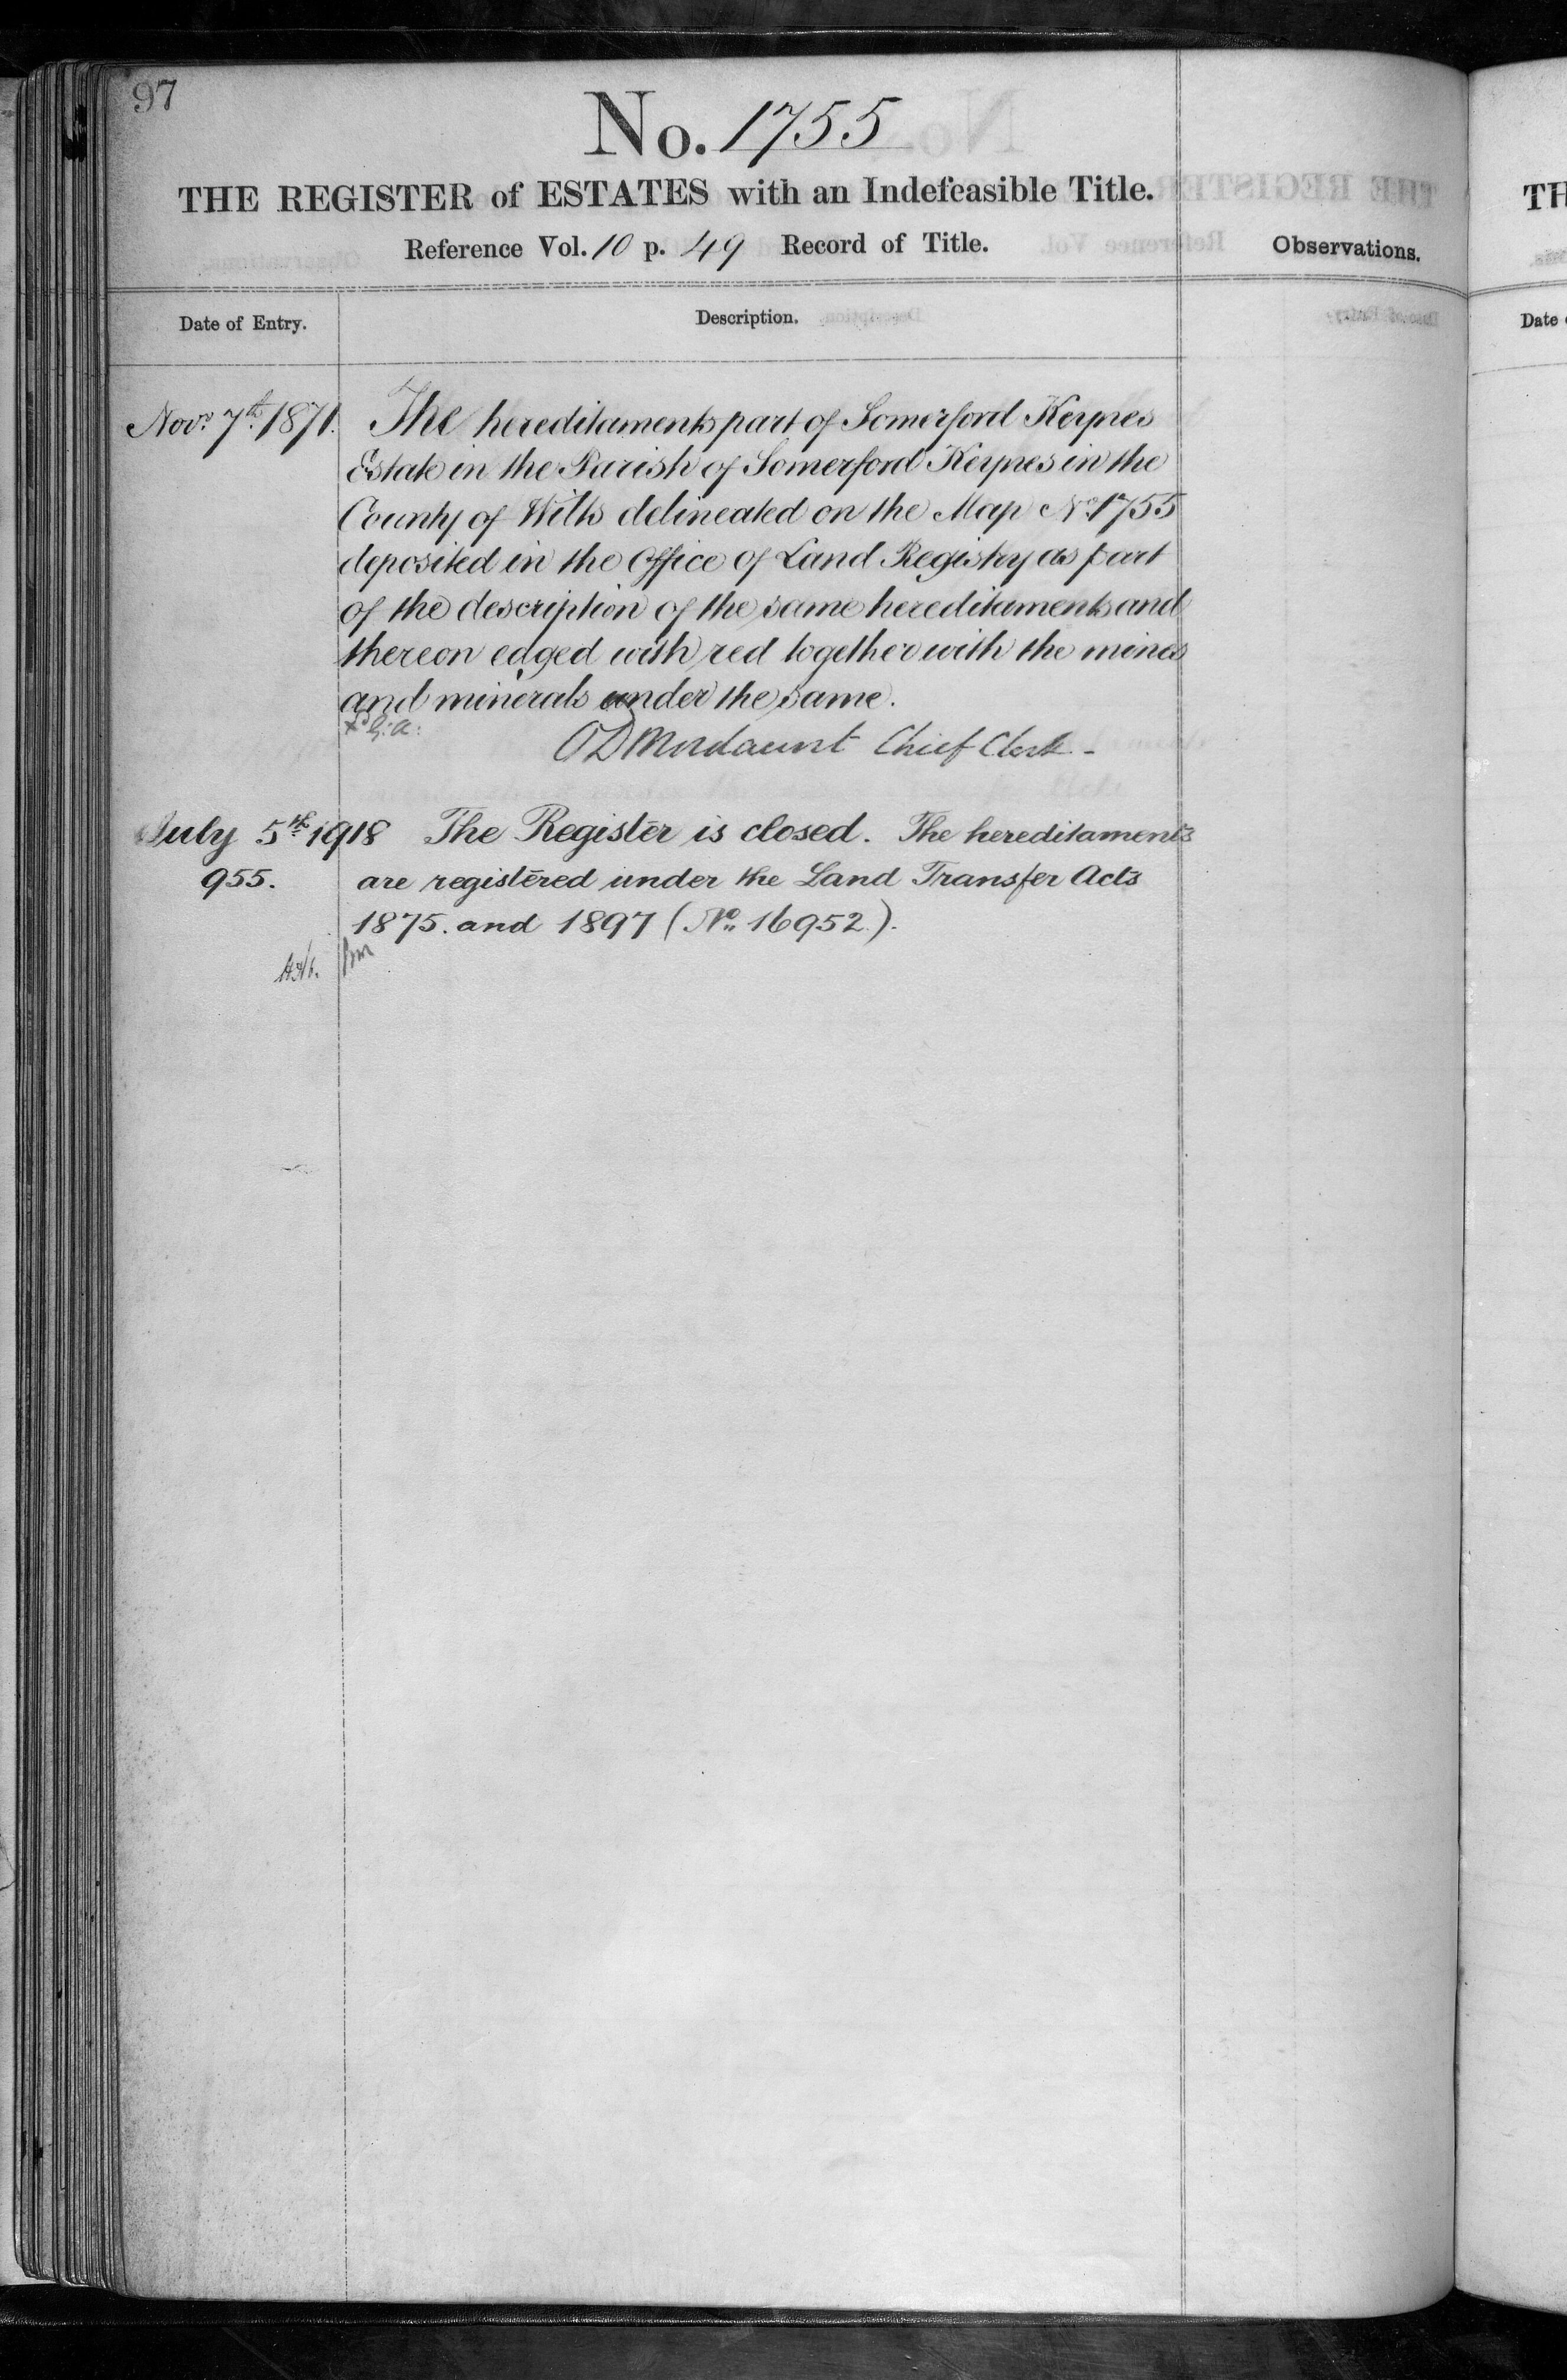 97
No. 1755
THE REGISTER of ESTATES with an Indefeasible Title.
Reference Vol. 10 p. 49 Record of Title.
Observations.
Date of Entry.
Description.
Novr. 7th. 1871. The hereditaments part of Somerford Keynes
Estate in the Parish of Somerford Keynes in the
County of Wilts delineated on the Map No. 1755
deposited in the Office of Land Registry as part
of the description of the same hereditaments and
thereon edged with red together with the mines
and minerals under the same.
Chief Clerk -
July 5th. 1918 The Register is closed. The hereditaments
955. are registered under the Land Transfer Acts
1875. and 1897 (No. 16952).
TH
Date